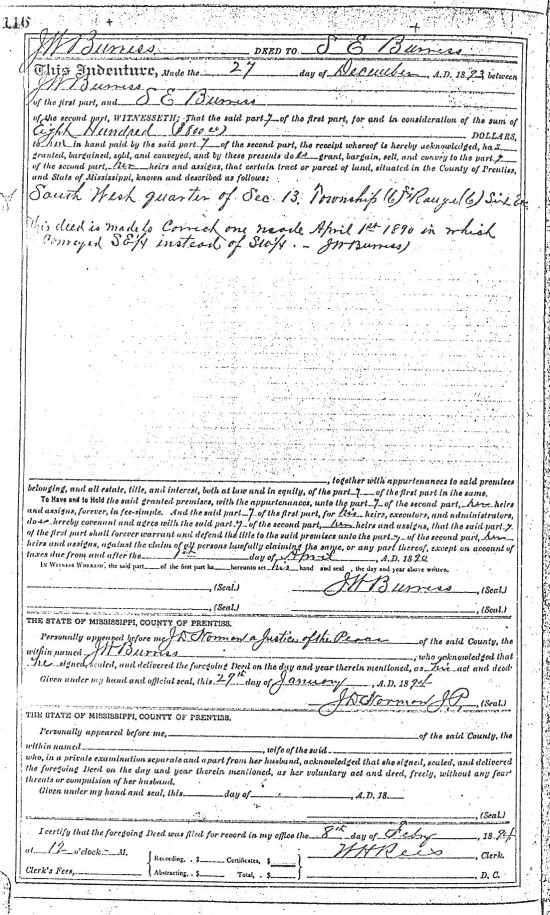 116
J W Burress DEED TO S E Burress
This Indenture, Made the 27 day of December A.D. 1893 between
J W Burress
of the first part, and S E Burress
of the second part, WITNESSETH: That the said part y of the first part, for and in consideration of the sum of
Eight Hundred ($800 00) DOLLARS,
to him in hand paid by the said part y of the second part, the receipt whereof is hereby acknowledged, ha s
granted, bargained, sold, and conveyed, and by these presents do es grant, bargain, sell, and convey to the part y
of the second part, her heirs and assigns, that certain tract or parcel of land, situated in the County of Prentiss,
and State of Mississippi, known and described as follows:
South West quarter of Sec 13, Township (6) Range (6) Six East
This deed is made to Correct one made April 1st 1890 in which
Conveyed SE/4 instead of SW/4. - J W Burress)
, together with appurtenances to said premises
belonging, and all estate, title, and interest, both at law and in equity, of the part y of the first part in the same.
To Have and to Hold the said granted premises, with the appurtenances, unto the part y of the second part, her heirs
and assigns, forever, in fee-simple. And the said part y of the first part, for his heirs, executors, and administrators,
do es hereby covenant and agree with the said part y of the second part, her heirs and assigns, that the said part y
of the first part shall forever warrant and defend the title to the said premises unto the part y of the second part, her
heirs and assigns, against the claim of all persons lawfully claiming the same, or any part thereof, except on account of
taxes due from and after the 1st day of April A.D. 1890
IN WITNESS WHEREOF, the said part of the first part ha hereunto set his hand and seal, the day and year above written.
, (Seal.) J W Burress , (Seal.)
, (Seal.) , (Seal.)
THE STATE OF MISSISSIPPI, COUNTY OF PRENTISS.
Personally appeared before me, J D Norman a Justice of the Peace of the said County, the
within named J W Burress , who acknowledged that
he signed, sealed, and delivered the foregoing Deed on the day and year therein mentioned, as his act and deed.
Given under my hand and official seal, this 29th day of January , A.D. 1894
J D Norman J.P. , (Seal.)
THE STATE OF MISSISSIPPI, COUNTY OF PRENTISS.
Personally appeared before me, of the said County, the
within named , wife of the said
who, in a private examination separate and apart from her husband, acknowledged that she signed, sealed, and delivered
the foregoing Deed on the day and year therein mentioned, as her voluntary act and deed, freely, without any fear
threats or compulsion of her husband.
Given under my hand and seal, this day of A.D. 18
(Seal.)
I certify that the foregoing Deed was filed for record in my office the 8th day of Feby , 1894
at 12 o'clock M. W H Rees , Clerk.
Recording, $ Certificates, $
Clerk's Fees, Abstracting, $ Total, $ , D. C.